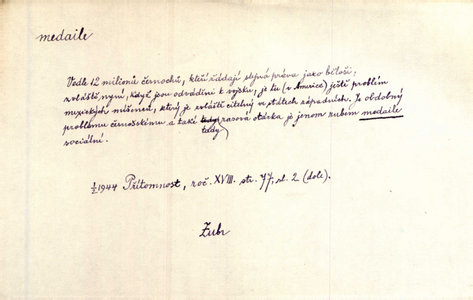 medaile
Vedle 12 milionů černochů, kteří žádají stejná práva jako běloši,
zvláště nyní, když jsou odváděni k vojsku, je tu (v Americe) ještě problém
mexických míšenců, který je zvláště citelný ve státech západních. Je obdobný
problému černošskému a také tedy rasová otázka je jenom rubem medaile
tedy
sociální.
1/2 1944 Přítomnost, roč. XVIII. str. 77, sl. 2 (dole).
Zubr